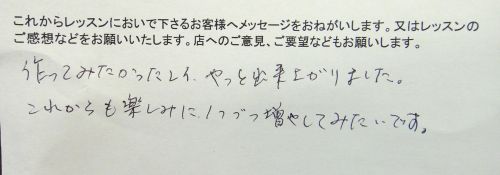 これからレッスンにおいで下さるお客様へメッセージをおねがいします。又はレッスンの
ご感想などをお願いいたします。店へのご意見、ご要望などもお願いします。
作ってみたかったレイ、やっと出来上がりました。
これからも楽しみに、1つづつ増やしてみたいです。